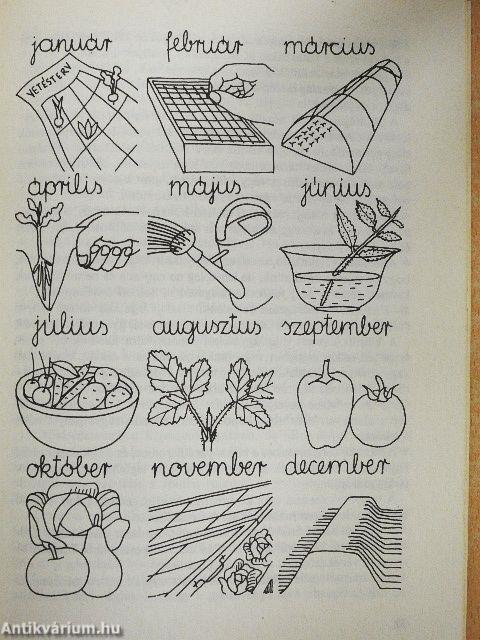 január február március
VETÉSTERV
április május június
július augusztus szeptember
október november december
Antikvárium.hu